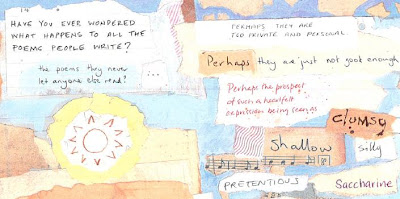 HAVE YOU EVER WONDERED
WHAT HAPPENS TO ALL THE
POEMS PEOPLE WRITE?
the poems they never
let anyone else read?
...
PERHAPS THEY ARE
TOO PRIVATE AND PERSONAL
Perhaps they are just not good enough
Perhaps the prospect
of such a heartfelt
expression being seen as
clumsy
shallow
silly
PRETENTIOUS
Saccharine